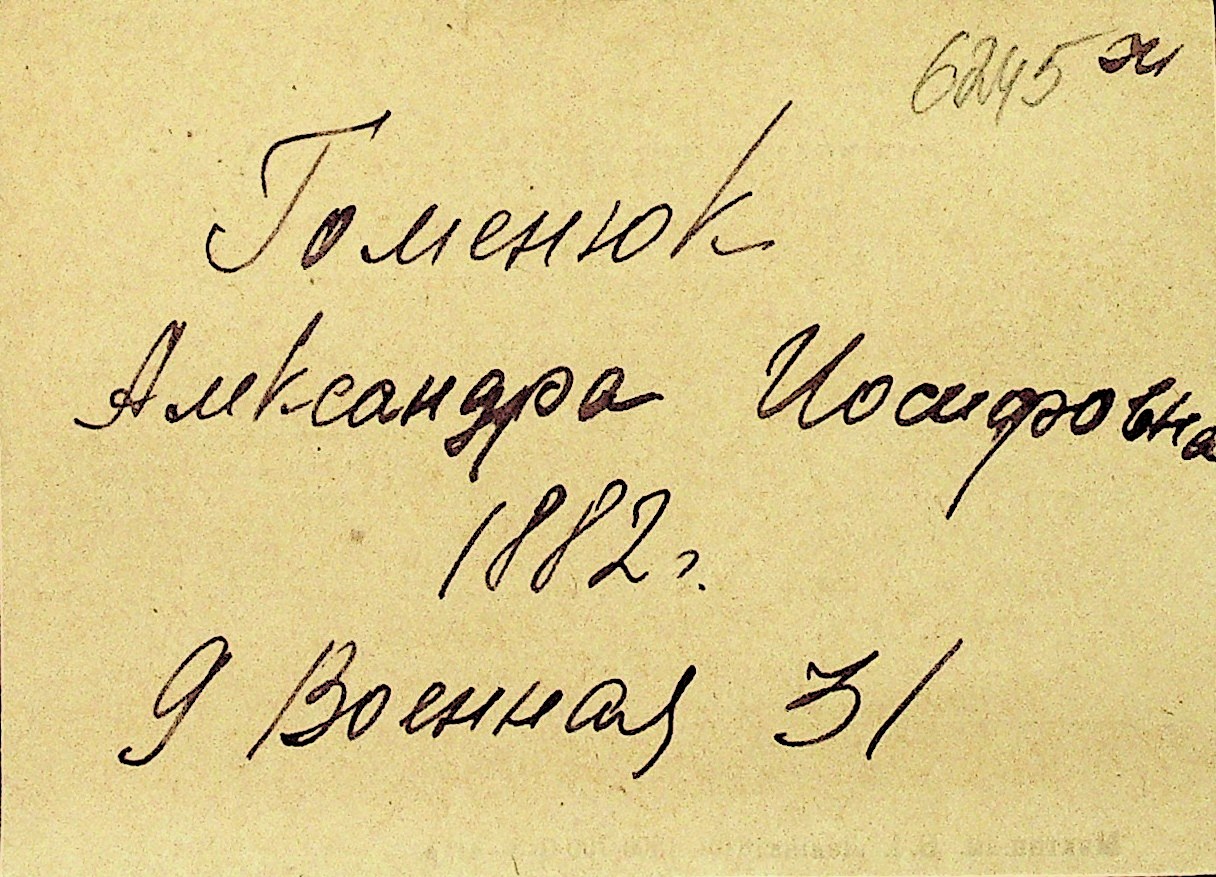 6245 ж
Гоменюк
Александра Иосифовна
1882 г.
9 Военная 31